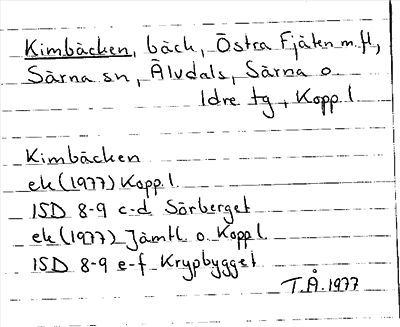 Kimbäcken, bäck, Östra Fjäten m.fl,
Särna sn, Älvdals, Särna o
Idre tg, Kopp.l
Kimbäcken
ek (1977) Kopp.l.
15D 8-9 c-d Sörberget
ek (1977) Jämtl o. Kopp.l.
15D 8-9 e-f Krypbygget
T.Å. 1977